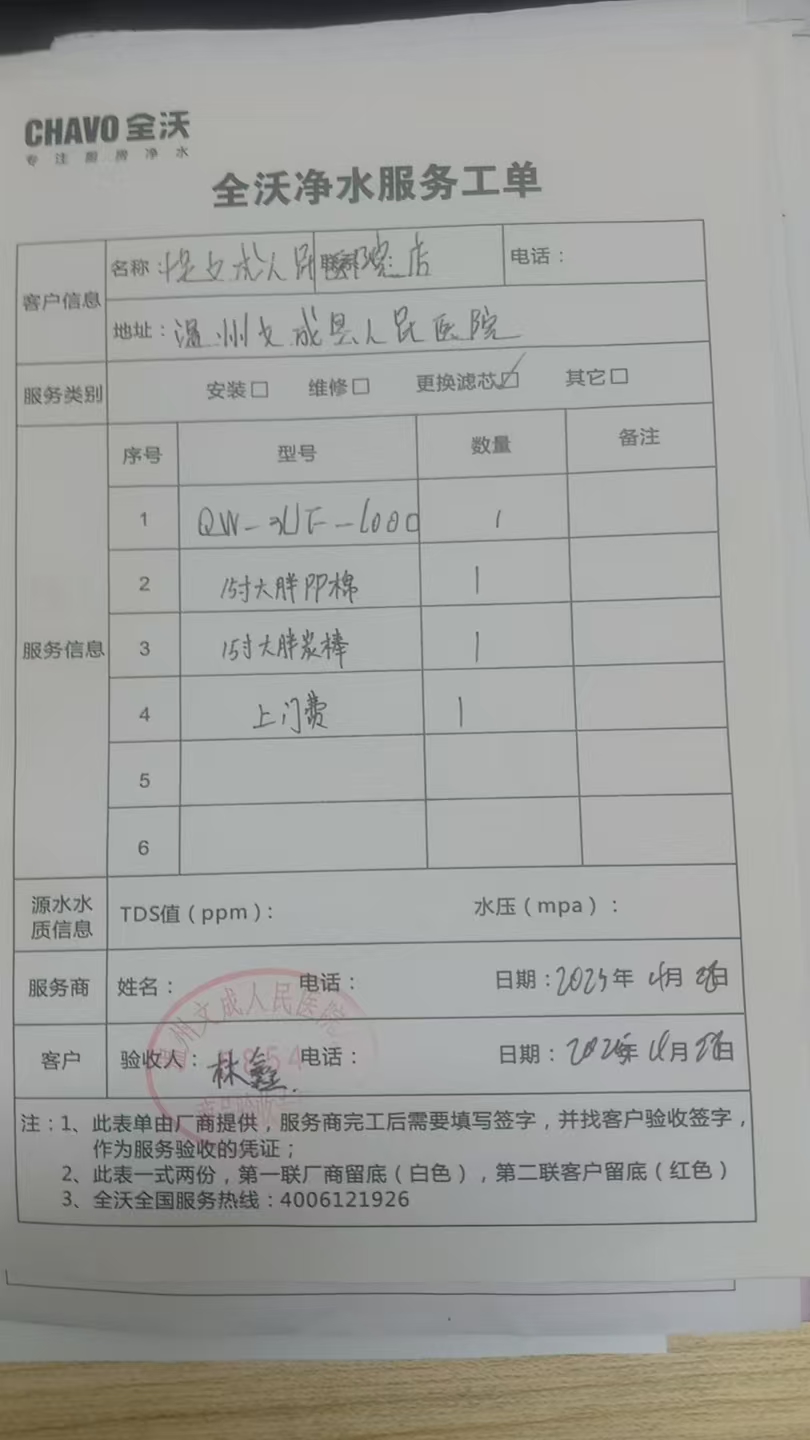 CHAVO 全沃
专注厨房净水
全沃净水服务工单
客户信息
名称：文成人民医院店
电话：
地址：温州文成县人民医院
服务类别 安装□ 维修□ 更换滤芯☑ 其它□
服务信息
序号 型号 数量 备注
1 QW-3UF-1000 1
2 15寸大胖PP棉 1
3 15寸大胖炭棒 1
4 上门费 1
5
6
源水水质信息 TDS值（ppm）： 水压（mpa）：
服务商 姓名： 电话： 日期：2025年4月28日
客户 验收人：林鑫 电话： 日期：2025年4月28日
州文成人民医院
854
注：1、此表单由厂商提供，服务商完工后需要填写签字，并找客户验收签字，
作为服务验收的凭证；
2、此表一式两份，第一联厂商留底（白色），第二联客户留底（红色）
3、全沃全国服务热线：4006121926